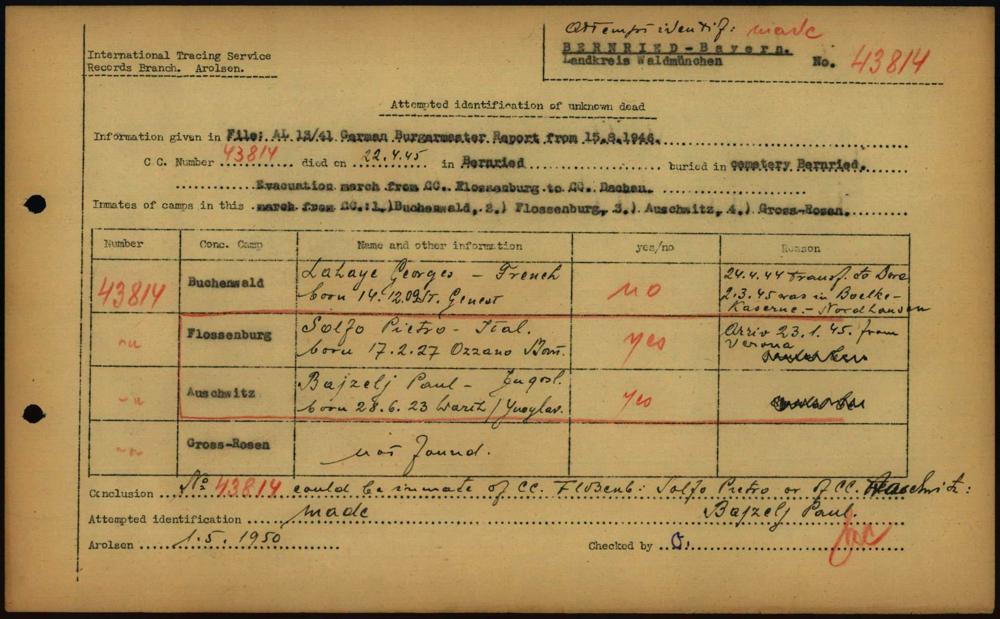 Attempt identif: made
International Tracing Service
Records Branch. Arolsen.
BERNRIED-Bayern.
Landkreis Waldmünchen
No. 43814
Attempted identification of unknown dead
Information given in File: AL 12/41 German Burgermaster Report from 15.8.1946.
C C. Number 43814 died on 22.4.45 in Bernried buried in cemetery Bernried.
Evacuation march from CC. Flossenburg to CC. Dachau.
Inmates of camps in this march from CC: 1.)Buchenwald, 2.) Flossenburg, 3.) Auschwitz, 4.) Gross-Rosen.
Number Conc. Camp Name and other information yes/no Reason
43814 Buchenwald Lahaye Georges - French
born 14.12.09 St. Genest
no
24.4.44 transf. to Dora
2.3.45 was in Boelke-
Kaserne - Nordhausen
-"- Flossenburg Solfo Pietro - Ital.
born 17.2.27 Ozzano Bom.
yes
Arriv 23.1.45. from
Verona
-"- Auschwitz Bajzelj Paul - Jugosl.
born 28.6.23 /Yugoslav.
yes
-"- Gross-Rosen not found.
Conclusion No 43814 could be inmate of CC. Floßenb: Solfo Pietro or of CC. Auschwitz:
Attempted identification made Bajzelj Paul.
Arolsen 1.5.1950 Checked by